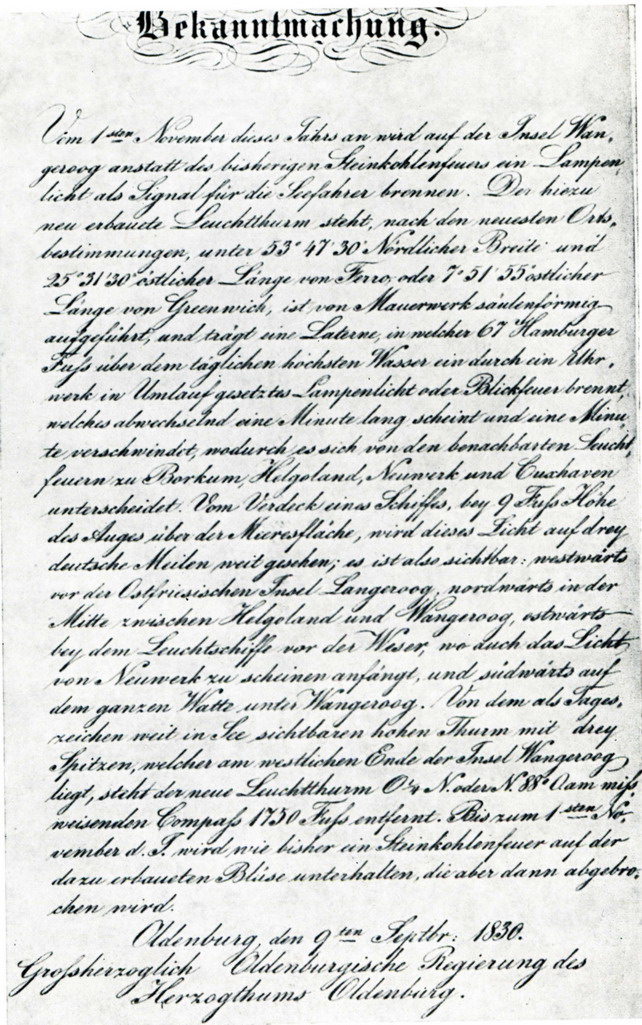 Bekanntmachung.
Vom 1sten November dieses Jahrs an wird auf der Insel Wan„
geroog anstatt des bisherigen Steinkohlenfeuers ein Lampen„
licht als Signal für die Seefahrer brennen. Der hiezu
neu erbauete Leuchtthurm steht, nach den neuesten Orts„
bestimmungen, unter 53° 47' 30" Nördlicher Breite und
25° 31' 30" östlicher Länge von Ferro, oder 7° 51' 55" östlicher
Länge von Greenwich, ist von Mauerwerk säulenförmig
aufgeführt, und trägt eine Laterne, in welcher 67 Hamburger
Fuſs über dem täglichen höchsten Wasser ein durch ein Uhr„
werk in Umlauf gesetztes Lampenlicht oder Blickfeuer brennt,
welches abwechselnd eine Minute lang scheint und eine Minu„
te verschwindet, wodurch es sich von den benachbarten Leucht„
feuern zu Borkum, Helgoland, Neuwerk und Cuxhaven
unterscheidet. Vom Verdeck eines Schiffes, bey 9 Fuſs Höhe
des Auges über der Meeresfläche, wird dieses Licht auf drey
deutsche Meilen weit gesehen; es ist also sichtbar: westwärts
vor der Ostfriesischen Insel Langeroog, nordwärts in der
Mitte zwischen Helgoland und Wangeroog, ostwärts
bey dem Leuchtschiffe vor der Weser, wo auch das Licht
von Neuwerk zu scheinen anfängt, und südwärts auf
dem ganzen Watte unter Wangeroog. Von dem als Tages„
zeichen weit in See sichtbaren hohen Thurm mit drey
Spitzen, welcher am westlichen Ende der Insel Wangeroog
liegt, steht der neue Leuchtthurm O¼ N. oder N. 88° O am miſs„
weisenden Compaſs 1750 Fuſs entfernt. Bis zum 1sten No„
vember d. J. wird wie bisher ein Steinkohlenfeuer auf der
dazu erbaueten Blüse unterhalten, die aber dann abgebro„
chen wird.
Oldenburg, den 9ten Septbr: 1830.
Groſsherzoglich Oldenburgische Regierung des
Herzogthums Oldenburg.